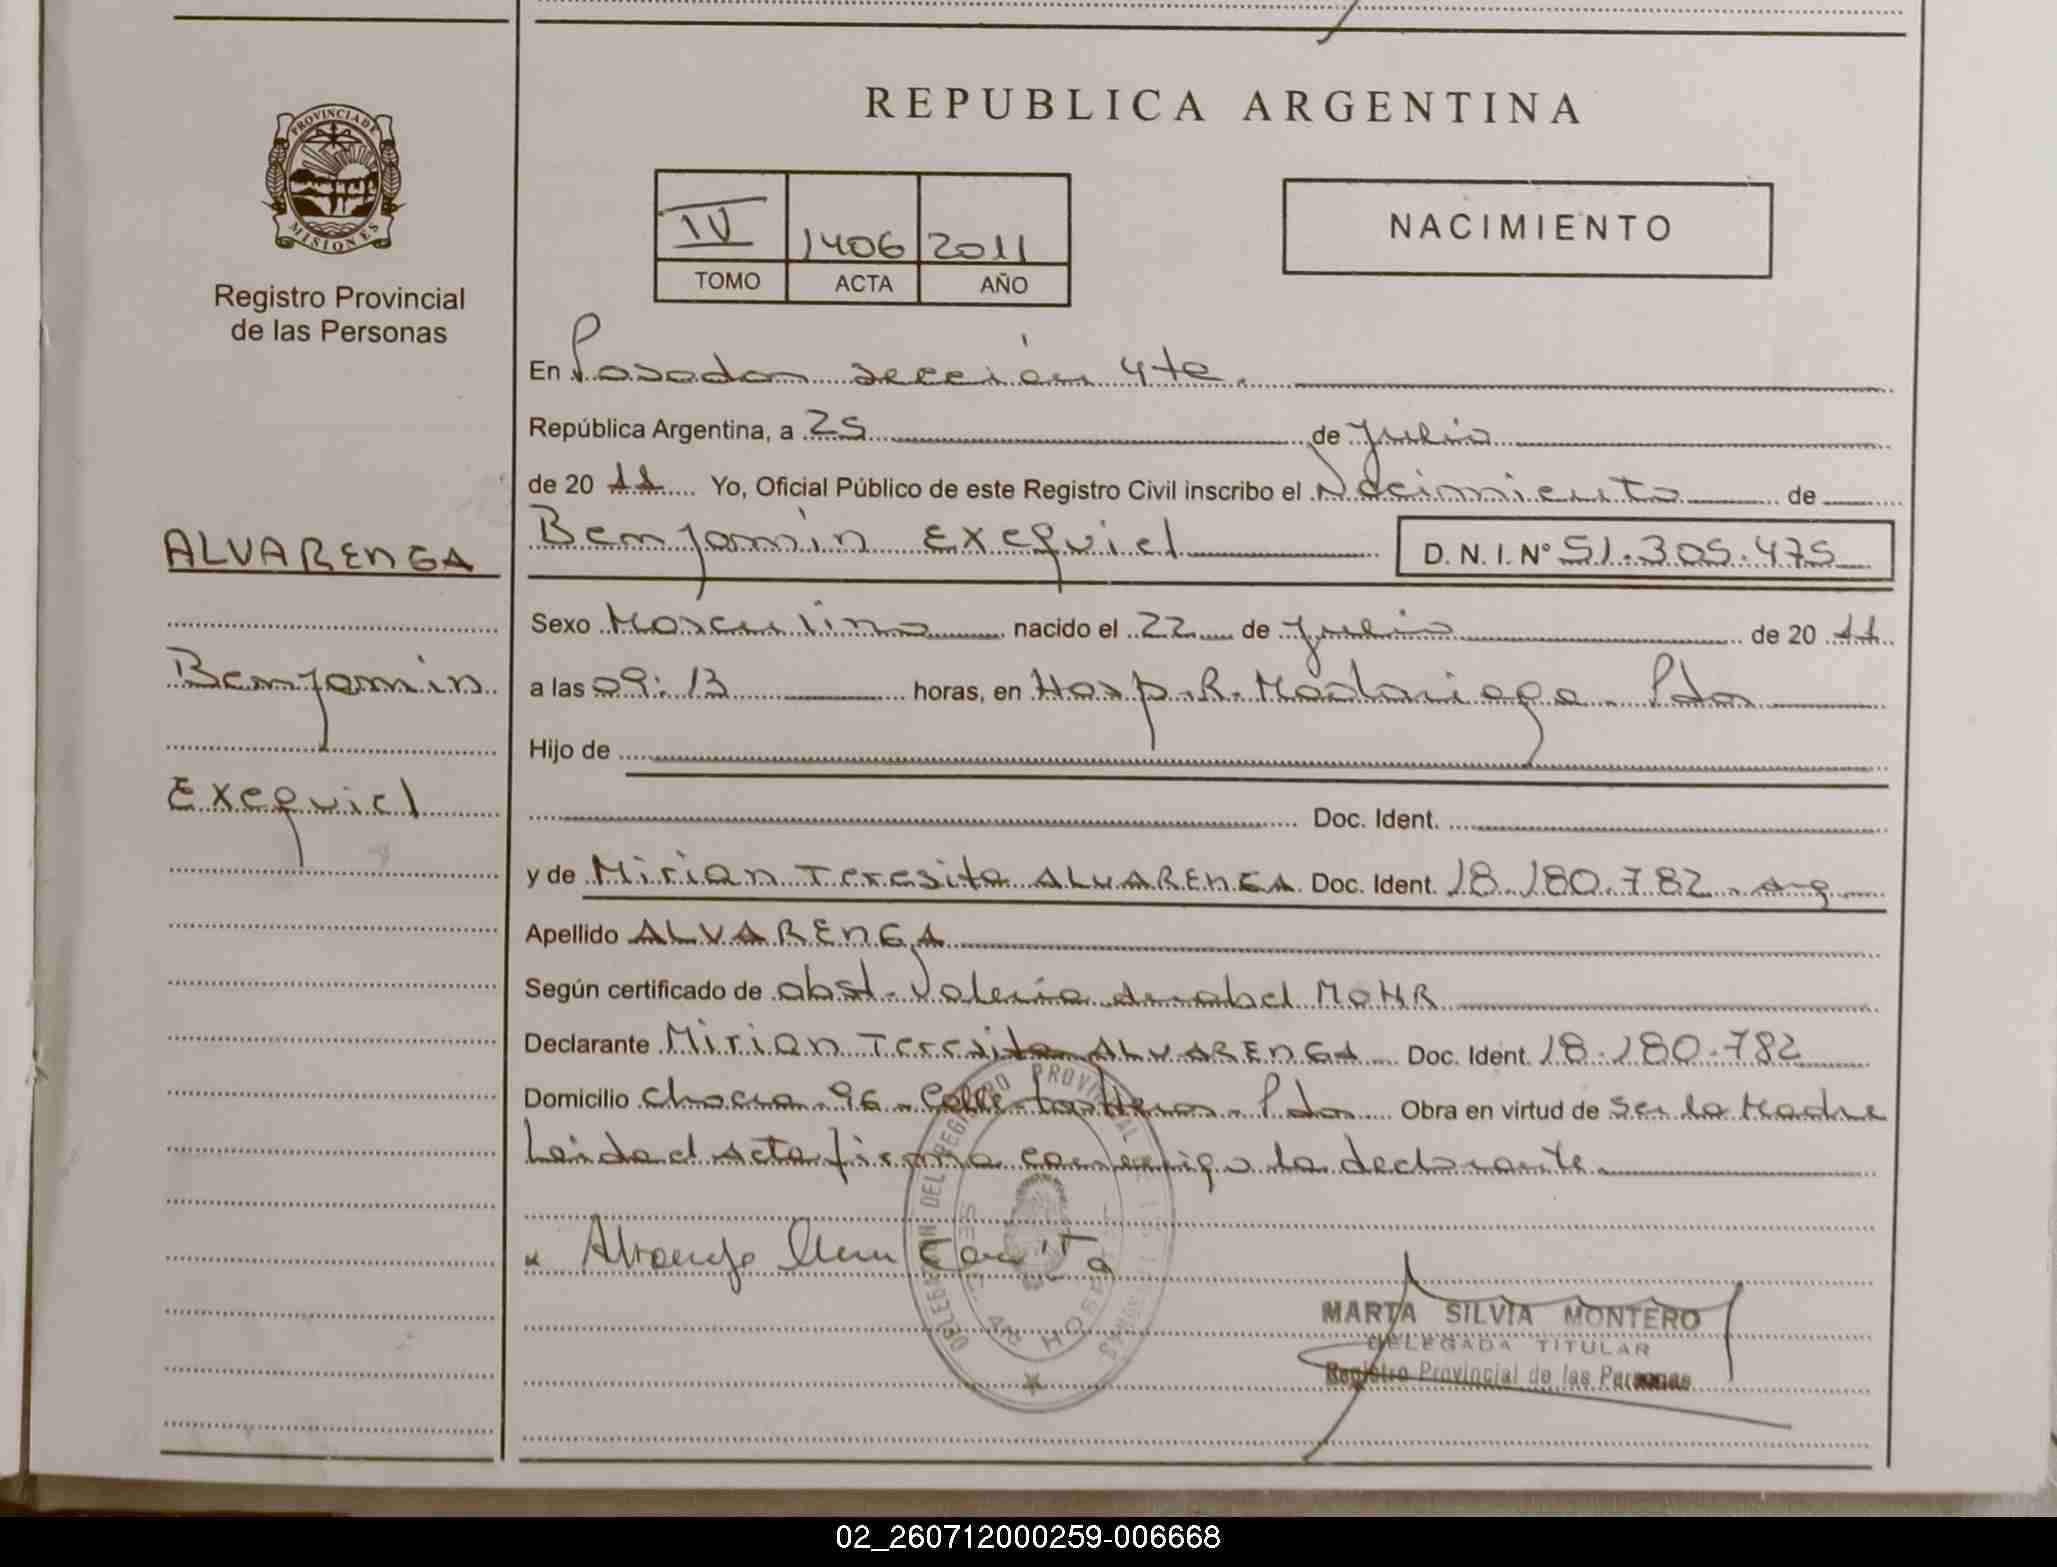 REPUBLICA ARGENTINA
PROVINCIA DE MISIONES
Registro Provincial
de las Personas
IV 1406 2011
TOMO ACTA AÑO
NACIMIENTO
En Posadas sección 4ta.
República Argentina, a 25 de Julio
de 2011 Yo, Oficial Público de este Registro Civil inscribo el Nacimiento de
ALVARENGA
Benjamin
Exequiel
Benjamin Exequiel D. N. I. Nº 51.305.475
Sexo Masculino nacido el 22 de Julio de 2011
a las 09:13 horas, en Hosp. R. Madariaga - Pdas
Hijo de
Doc. Ident.
y de Mirian Teresita ALVARENGA Doc. Ident. 18.180.782 - arg
Apellido ALVARENGA
Según certificado de obst. Valeria MOHR
Declarante Mirian Teresita ALVARENGA Doc. Ident. 18.180.782
Domicilio chacra 96 - Calle - Pdas Obra en virtud de ser la Madre
Leida el acta firma conmigo la declarante.
DELEGACION DEL REGISTRO PROVINCIAL DE LAS PERSONAS
MARTA SILVIA MONTERO
DELEGADA TITULAR
Registro Provincial de las Personas
02_260712000259-006668